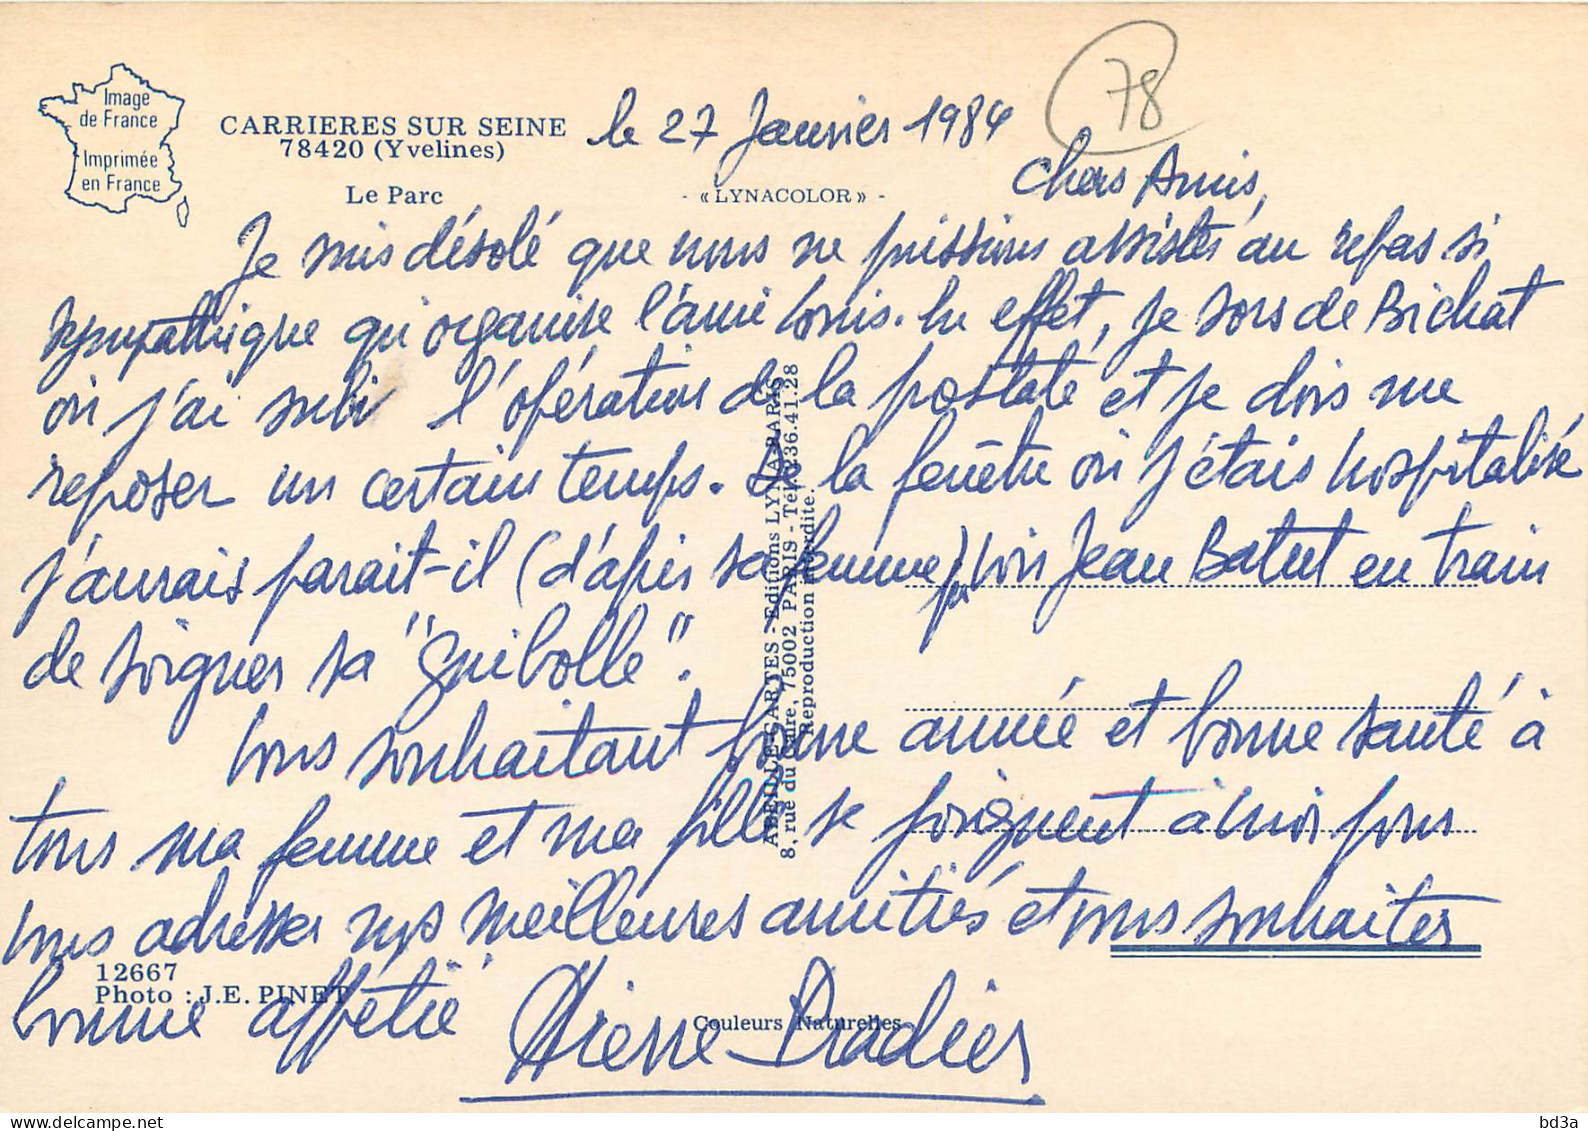 Image
de France
Imprimée
en France
CARRIERES SUR SEINE
78420 (Yvelines)
Le Parc
- « LYNACOLOR » -
78
le 27 Janvier 1984
Chers Amis,
Je suis désolé que nous ne puissions assister au repas si
sympathique qu'organise l'ami Louis. En effet, je sors de Bichat
où j'ai subi l'opération de la postate et je dois me
reposer un certain temps. De la fenêtre où j'étais hospitalisé
j'aurais parait-il (d'après sa femme) pu voir Jean Batut en train
de soigner sa "guibolle".
Vous souhaitant bonne année et bonne santé à
tous ma femme et ma fille se joignent à moi pour
vous adresser nos meilleures amitiés et vous souhaiter
bonne appétit
Pierre Pradier
ABEILLE-CARTES - Editions LYNA-PARIS
8, rue du Caire, 75002 PARIS - Tél. 236.41.28
Reproduction interdite.
12667
Photo : J.E. PINET
Couleurs Naturelles
delcampe.net
bd3a